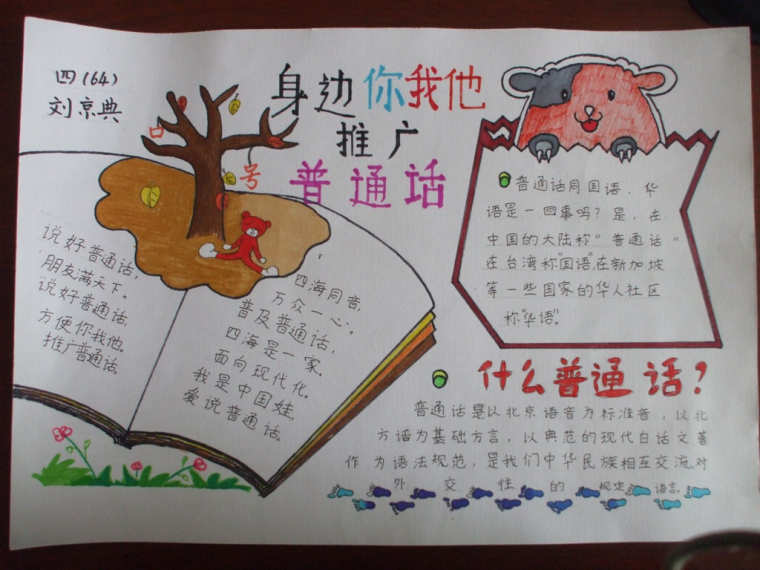 四(64)
刘京典
身边你我他
推广
普通话
口
号
说好普通话,
朋友满天下。
说好普通话
方便你我他。
推广普通话
四海同音,
万众一心。
普及普通话,
四海是一家。
面向现代化。
我是中国娃。
爱说普通话。
普通话同国语、华
语是一回事吗?是,在
中国的大陆称“普通话”
在台湾称“国语”在新加坡
等一些国家的华人社区
称“华语”。
什么普通话?
普通话是以北京语音为标准音,以北
方语为基础方言,以典范的现代白话文著
作为语法规范,是我们中华民族相互交流对
外交性的规定语言。